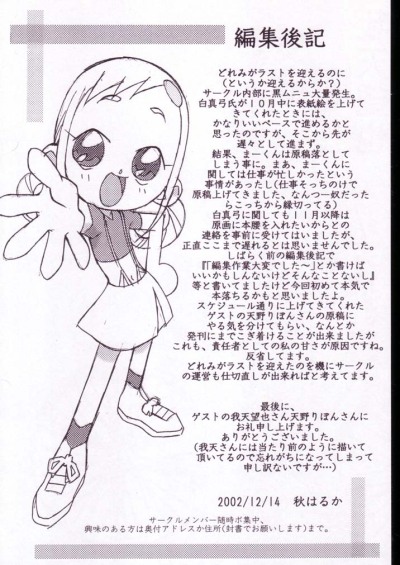 編集後記
どれみがラストを迎えるのに
(というか迎えるからか?)
サークル内部に黒ムニュ大量発生。
白真弓氏が10月中に表紙絵を上げて
きてくれたときには、
かなりいいペースで進めるかと
思ったのですが、そこから先が
遅々として進まず。
結果、まーくんは原稿落として
しまう事に。まあ、まーくんに
関しては仕事が忙しかったという
事情があったし(仕事そっちのけで
原稿上げてきました、なんつー奴だった
らこっちから縁切ってる)
白真弓に関しても11月以降は
原画に本腰を入れたいからとの
連絡を事前に受けてはいましたが、
正直ここまで遅れるとは思いませんでした。
しばらく前の編集後記で
『「編集作業大変でした〜」とか書けば
いいかもしんないけどそんなことないし』
等と書いてましたけど今回初めて本気で
本落ちるかもと思いましたよ。
スケジュール通りに上げてきてくれた
ゲストの天野りぼんさんの原稿に
やる気を分けてもらい、なんとか
発刊にまでこぎ着けることが出来ましたが
これも、責任者としての私の甘さが原因ですね。
反省してます。
どれみがラストを迎えたのを機にサークル
の運営も仕切直しが出来ればと考えてます。
最後に、
ゲストの我天望也さん天野りぼんさんに
お礼申し上げます。
ありがとうございました。
(我天さんには当たり前のように描いて
頂いてるので忘れがちになってしまって
申し訳ないですが…)
2002/12/14 秋はるか
サークルメンバー随時ボ集中、
興味のある方は奥付アドレスか住所(封書でお願いします)まで。